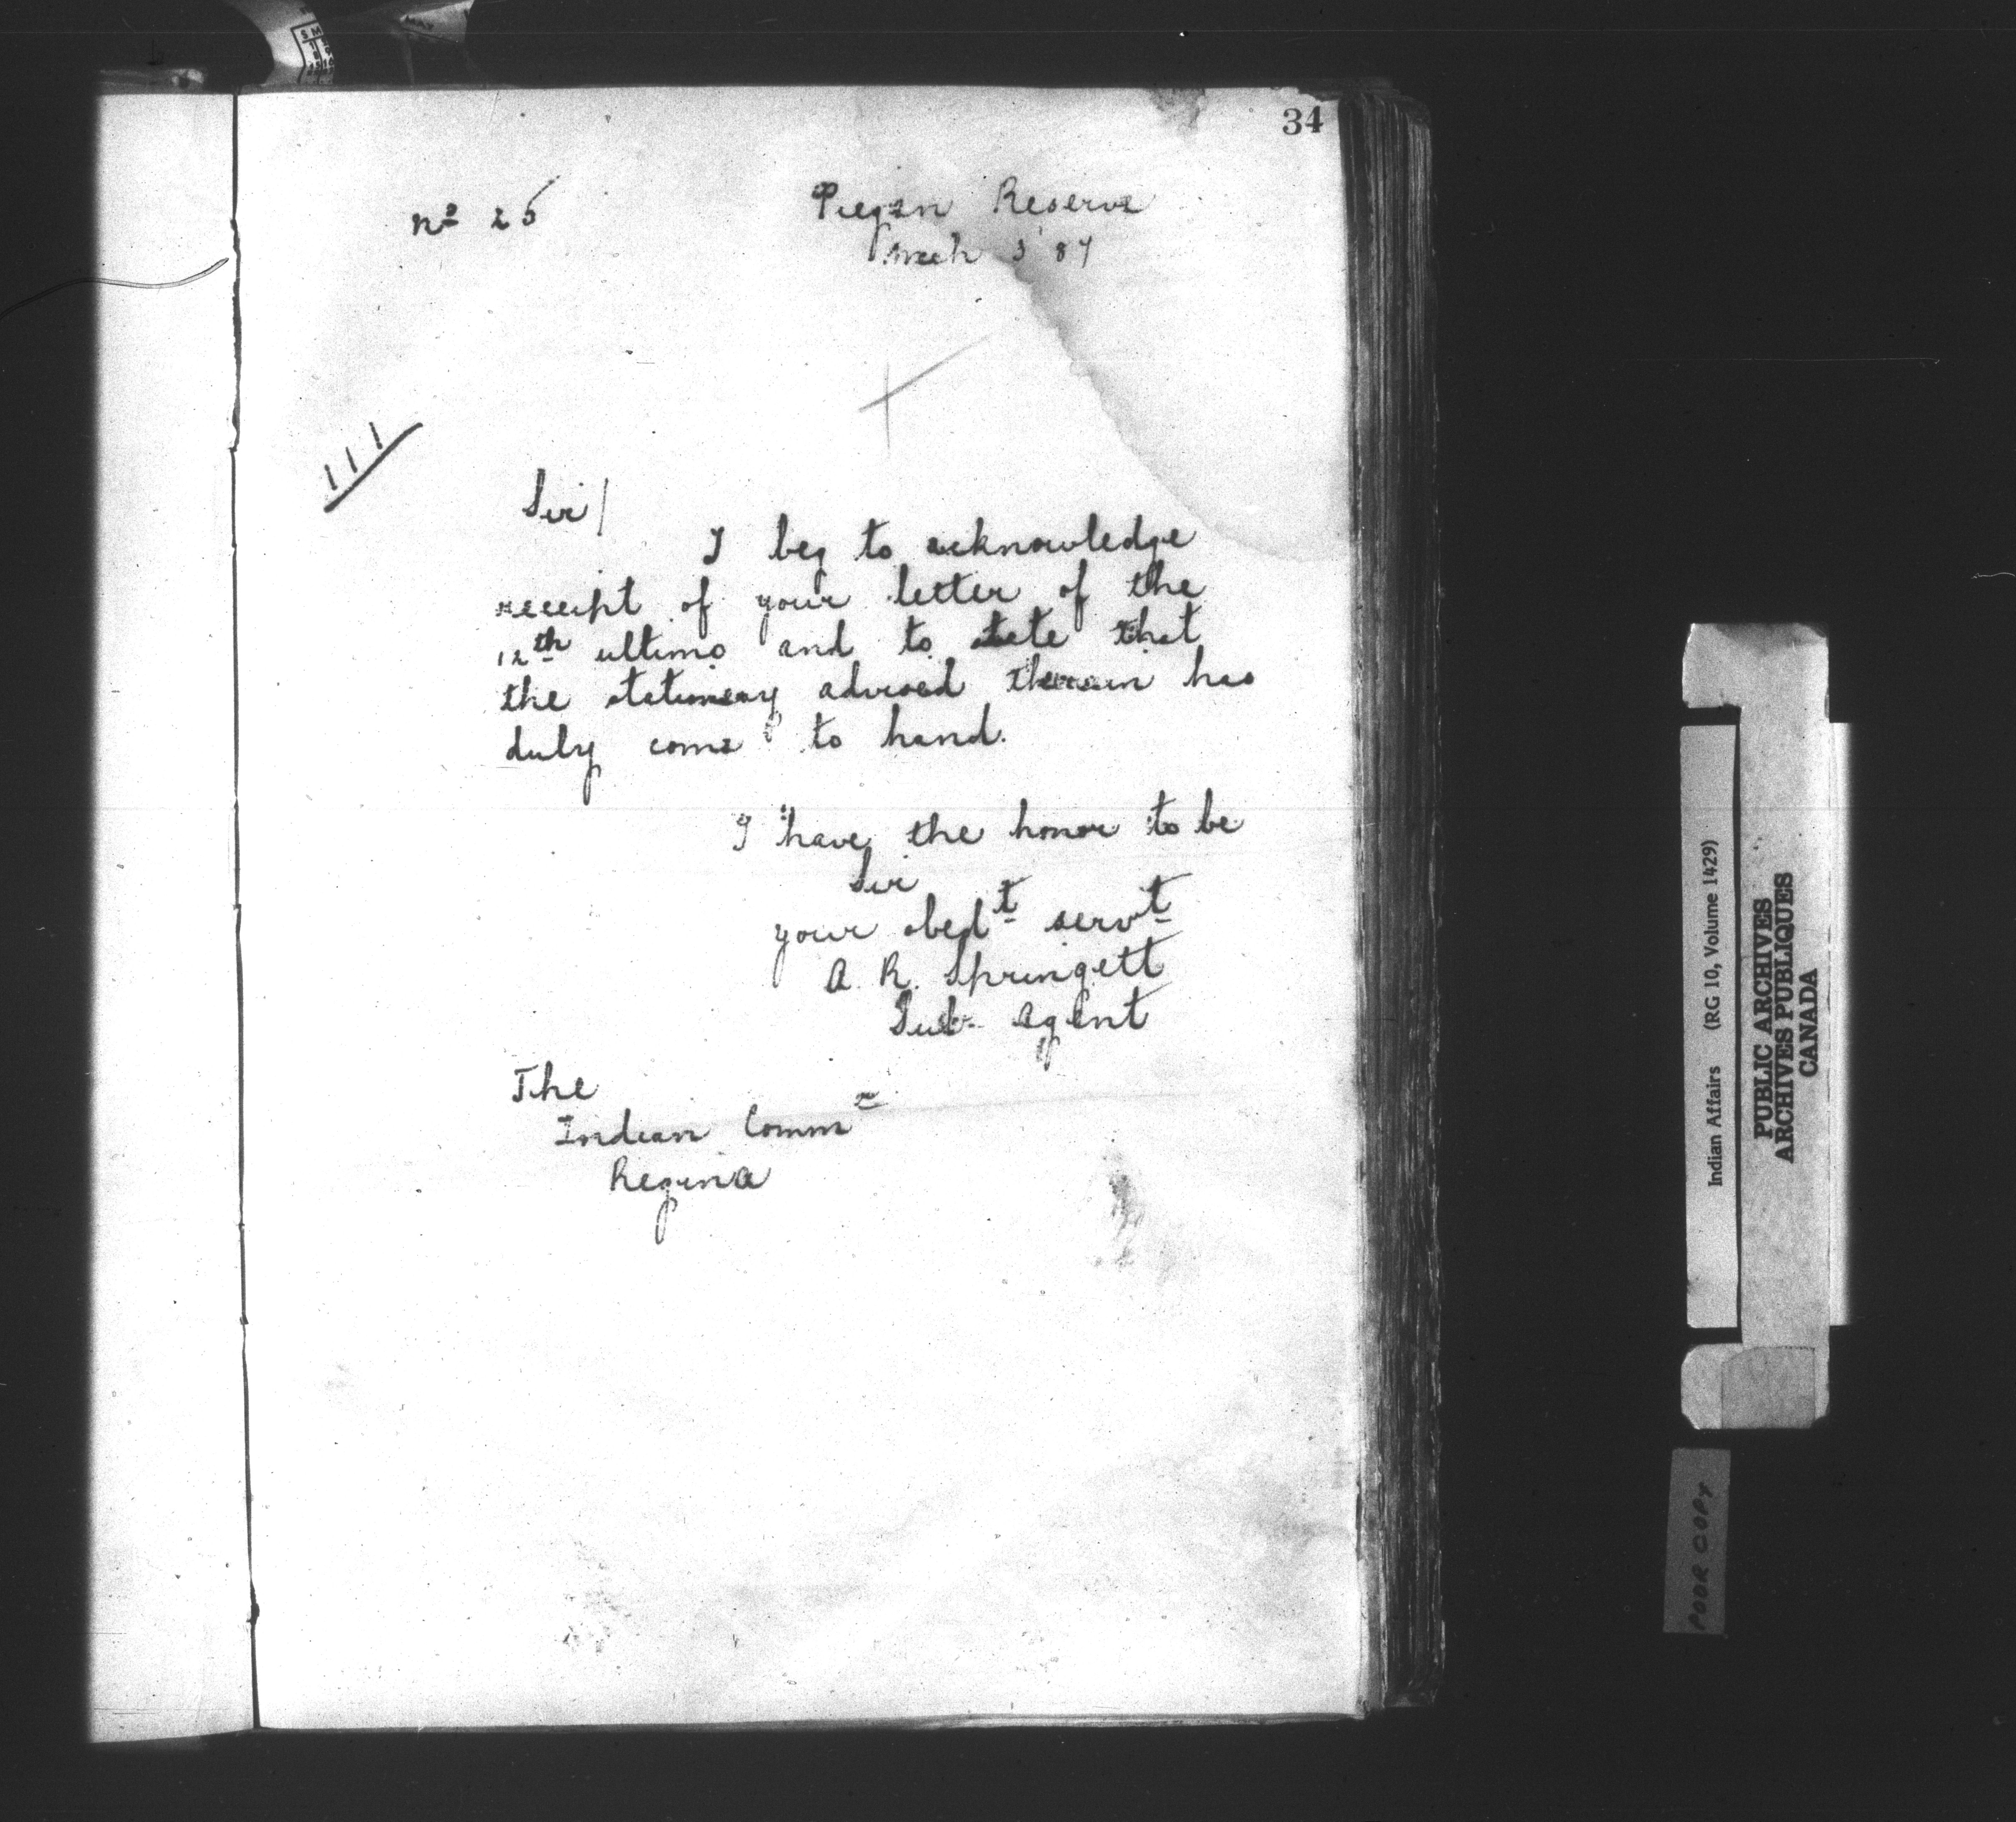 34
No 25
Piegan Reserve
Mch 3 '87
111
Sir/
I beg to acknowledge
receipt of your letter of the
12th ultimo and to state that
the stationery advised therein has
duly come to hand.
I have the honor to be
Sir
your obedt servt
A. R. Springett
Sub. Agent
The
Indian Commr
Regina
Indian Affairs (RG 10, Volume 1429)
PUBLIC ARCHIVES
ARCHIVES PUBLIQUES
CANADA
POOR COPY